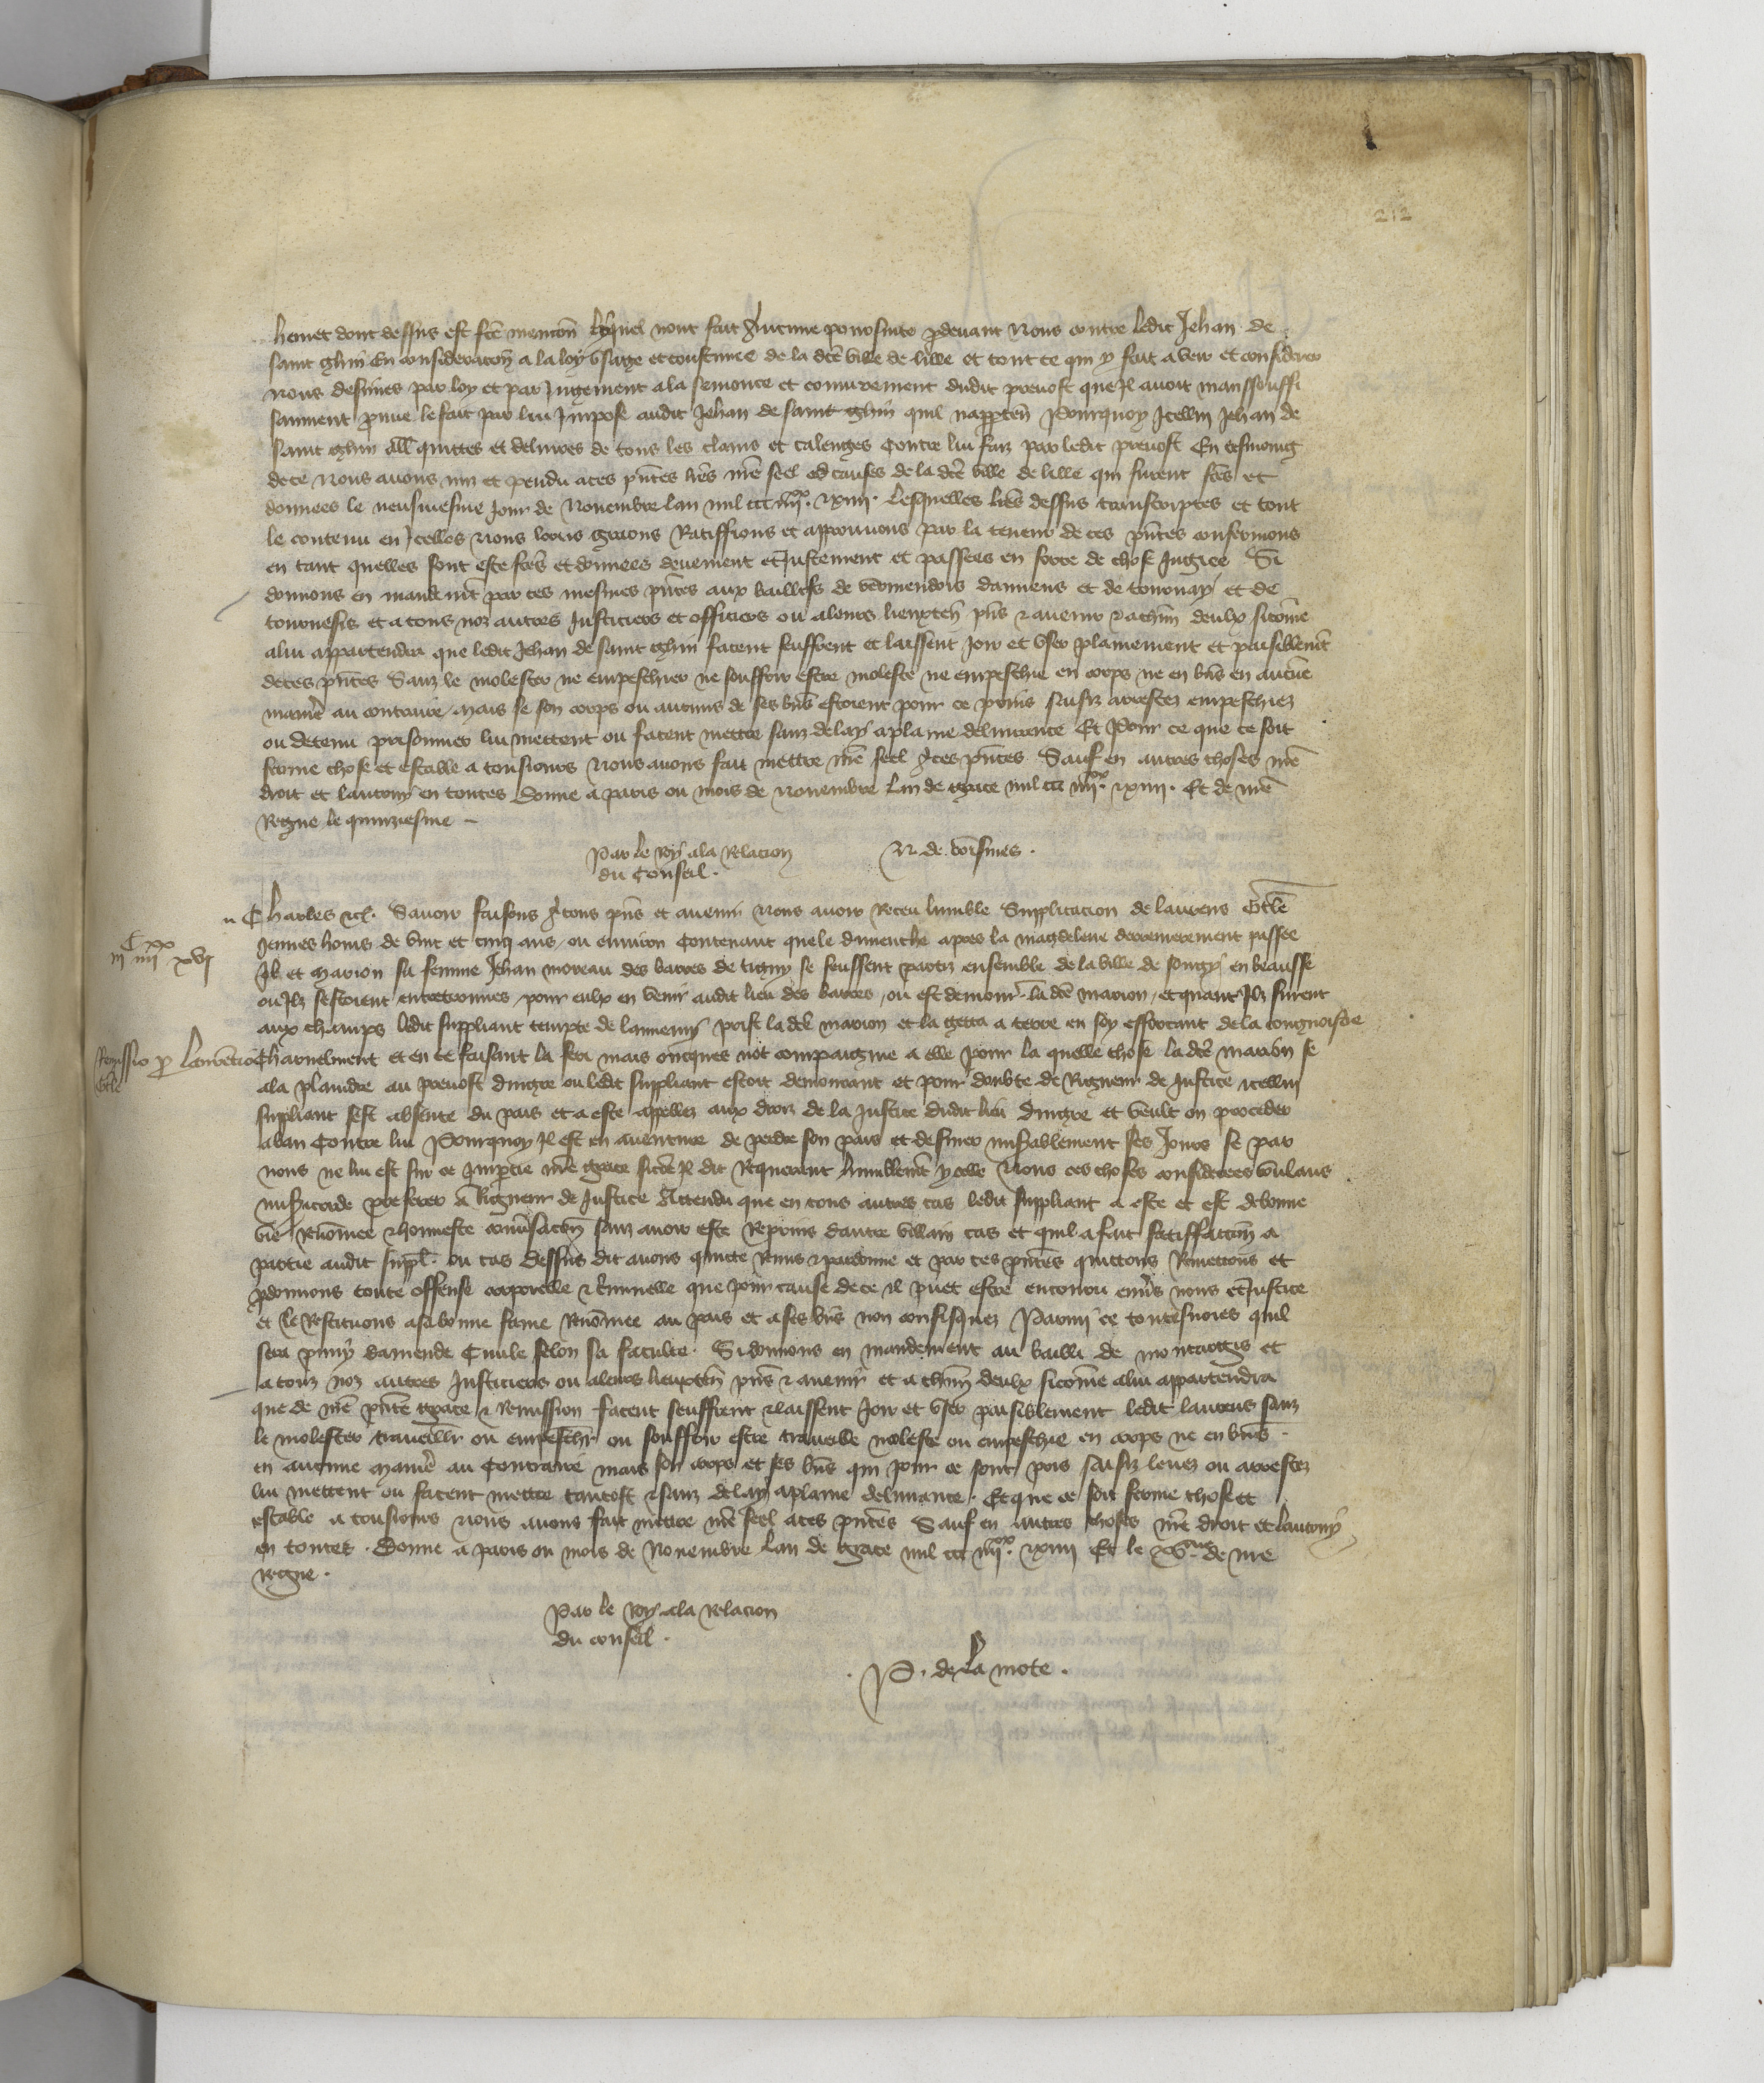 212
hemet dont dessus est fcē mencōn lequel nont fait aucune poursuite pdevant nous contre ledit Jehan de
saint ghin En consideracōn a la loy usage et coustume de la dcē ville de lille et tout ce qui y fait a veir et considerer
nous desimes par loy et par Jugement a la semonce et conjurement dudit prevost que Jl avoit mainssouffi
saument prouve le fait par lui Jmpose audit Jehan de saint ghin quil nappten Pourquoy Jcellui Jehan de
saint ghin all quittes et delivres de tous les clains et calenges contre lui faiz par ledit prevost En tesmoing
de ce nous avons mis et pendu a ces pñtes lres nrē seel ad causes de la dcē ville de lille qui furent fcēs et
donnees le neufviesme jour de Novembre lan mil ccc iiii xx xiiii. Lesquelles lrēs dessus transcriptes et tout
le contenu en Jcelles nous loons greons Ratiffions et approuvons par la teneur de ces pñtes confermons
en tant quelles sont este fcēs et donnees deuement et Justement et passees en force de chose Jugiee Si
donnons en mandemt par ces mesmes pñtes aux baillifs de vermendois damiens et de tournay et de
tournesis et a tous noz autres Justiciers et officiers ou a leurs lieuxten pñs & avenir & a chūn deulx sicome
a lui appartendra que ledit Jehan de saint ghin facent seuffrent et laissent joir et user plainement et paisiblemt
de ces pñtes Sanz le molester ne empeschier ne souffrir estre moleste ne empeschie en corps ne en biēs en aucūe
maniē au contraire, mais se son corps ou aucuns de ses biēs estoient pour ce prins saisiz arrestez empeschiez
ou detenu prisonnier lui mettent ou facent mettre sanz delay a plaine delivrance Et Pour ce que ce soit
ferme chose et estable a tousjours nous avons fait mettre nrē seel a ces pñtes Sauf en autres choses nrē
droit et lautruy en toutes Donne a paris ou mois de novembre Lan de grace mil ccc iiii xx xiiii. Et de nrē
Regne le quinziesme
Par le Roy a la Relacion
du Conseil.
N. de voisines.
Charles &c. Savoir faisons a tous pñs et avenir nous avoir Receu lumble Supplicacion de laurens
Jeunes homs de vint et cinq ans, ou environ Contenant que le dimenche apres la magdelene derrenierement passee
C xx
iii iiii xvi
Jl et marion sa femme Jehan moreau des barres de tigny se feussent partiz ensemble de la ville de songy en beausse
ou Jlz sestoient entretrouvés, pour eulx en venir audit lieu des barres, ou est demourt la dcē marion, et quant Jlz furent
aux champs ledit suppliant tempte de lannemy prist la dcē marion et la getta a terre en soy efforcant de la congnoistre
Remissio p Laurētio
charnelment et en ce faisant la feri mais oncques not compaignie a elle pour la quelle chose la dcē marion se
ala plaindre au prevost dingre ou ledit suppliant estoit demourant et pour doubte de Rigueur de Justice icellui
suppliant sest absente du pais et a este appellez aux droiz de la Justice dudit lieu dingre et veult on proceder
a ban Contre lui Pourquoy Jl est en aventure de perdre son pais et de finer miserablement ses Jours se par
nous ne lui est sur ce Jmptie nrē grace sicōe Jl dit Requerant humblemēt ycelle Nous ces choses considerees voulans
misericorde preferer a Rigueur de Justice Attendu que en tous autres cas ledit suppliant a este et est de bonne
vie Renōmee & honneste conūsacōn sanz avoir este Reprins dautre villain cas et quil a fait satisffaccōn a
partie audit suppl. ou cas dessus dit avons quitte Remis & pardonne et par ces pñtes quittons Remettons et
pdonnons toute offense corporelle & criminelle que pour cause de ce il puet estre encouru envs nous et Justice
et le Restituons a sa bonne fame Renōmee au pais et a ses biēs non confisquez Parmi ce toutesvoies quil
sera puny damende Civile selon sa faculte. Si donnons en mandement au bailli de montargis et
a touz noz autres Justiciers ou a leurs lieuxten pñs & avenir et a chūn deulx sicōme a lui appartendra
que de nrē pñte grace & Remission facent seuffrent & laissent Joir et user paisiblement ledit laurens sanz
le molester travaillier ou empeschier ou souffrir estre travaille moleste ou empeschie en corps ne en biens
en aucune maniē au Contraire mais son corps et ses biēs qui pour ce sont pris saisiz levez ou arrestez
lui mettent ou facent mettre tantost & sanz delay a plaine delivrance. Et que ce soit ferme chose et
estable a tousjours nous avons fait mettre nrē seel a ces pñtes Sauf en autres choses nrē droit et lautruy
en toutes. Donne a paris ou mois de Novembre Lan de grace mil ccc iiii xx xiiii Et le xvme de nrē
Regne.
Par le Roy a la Relacion
du conseil.
P. de la mote.